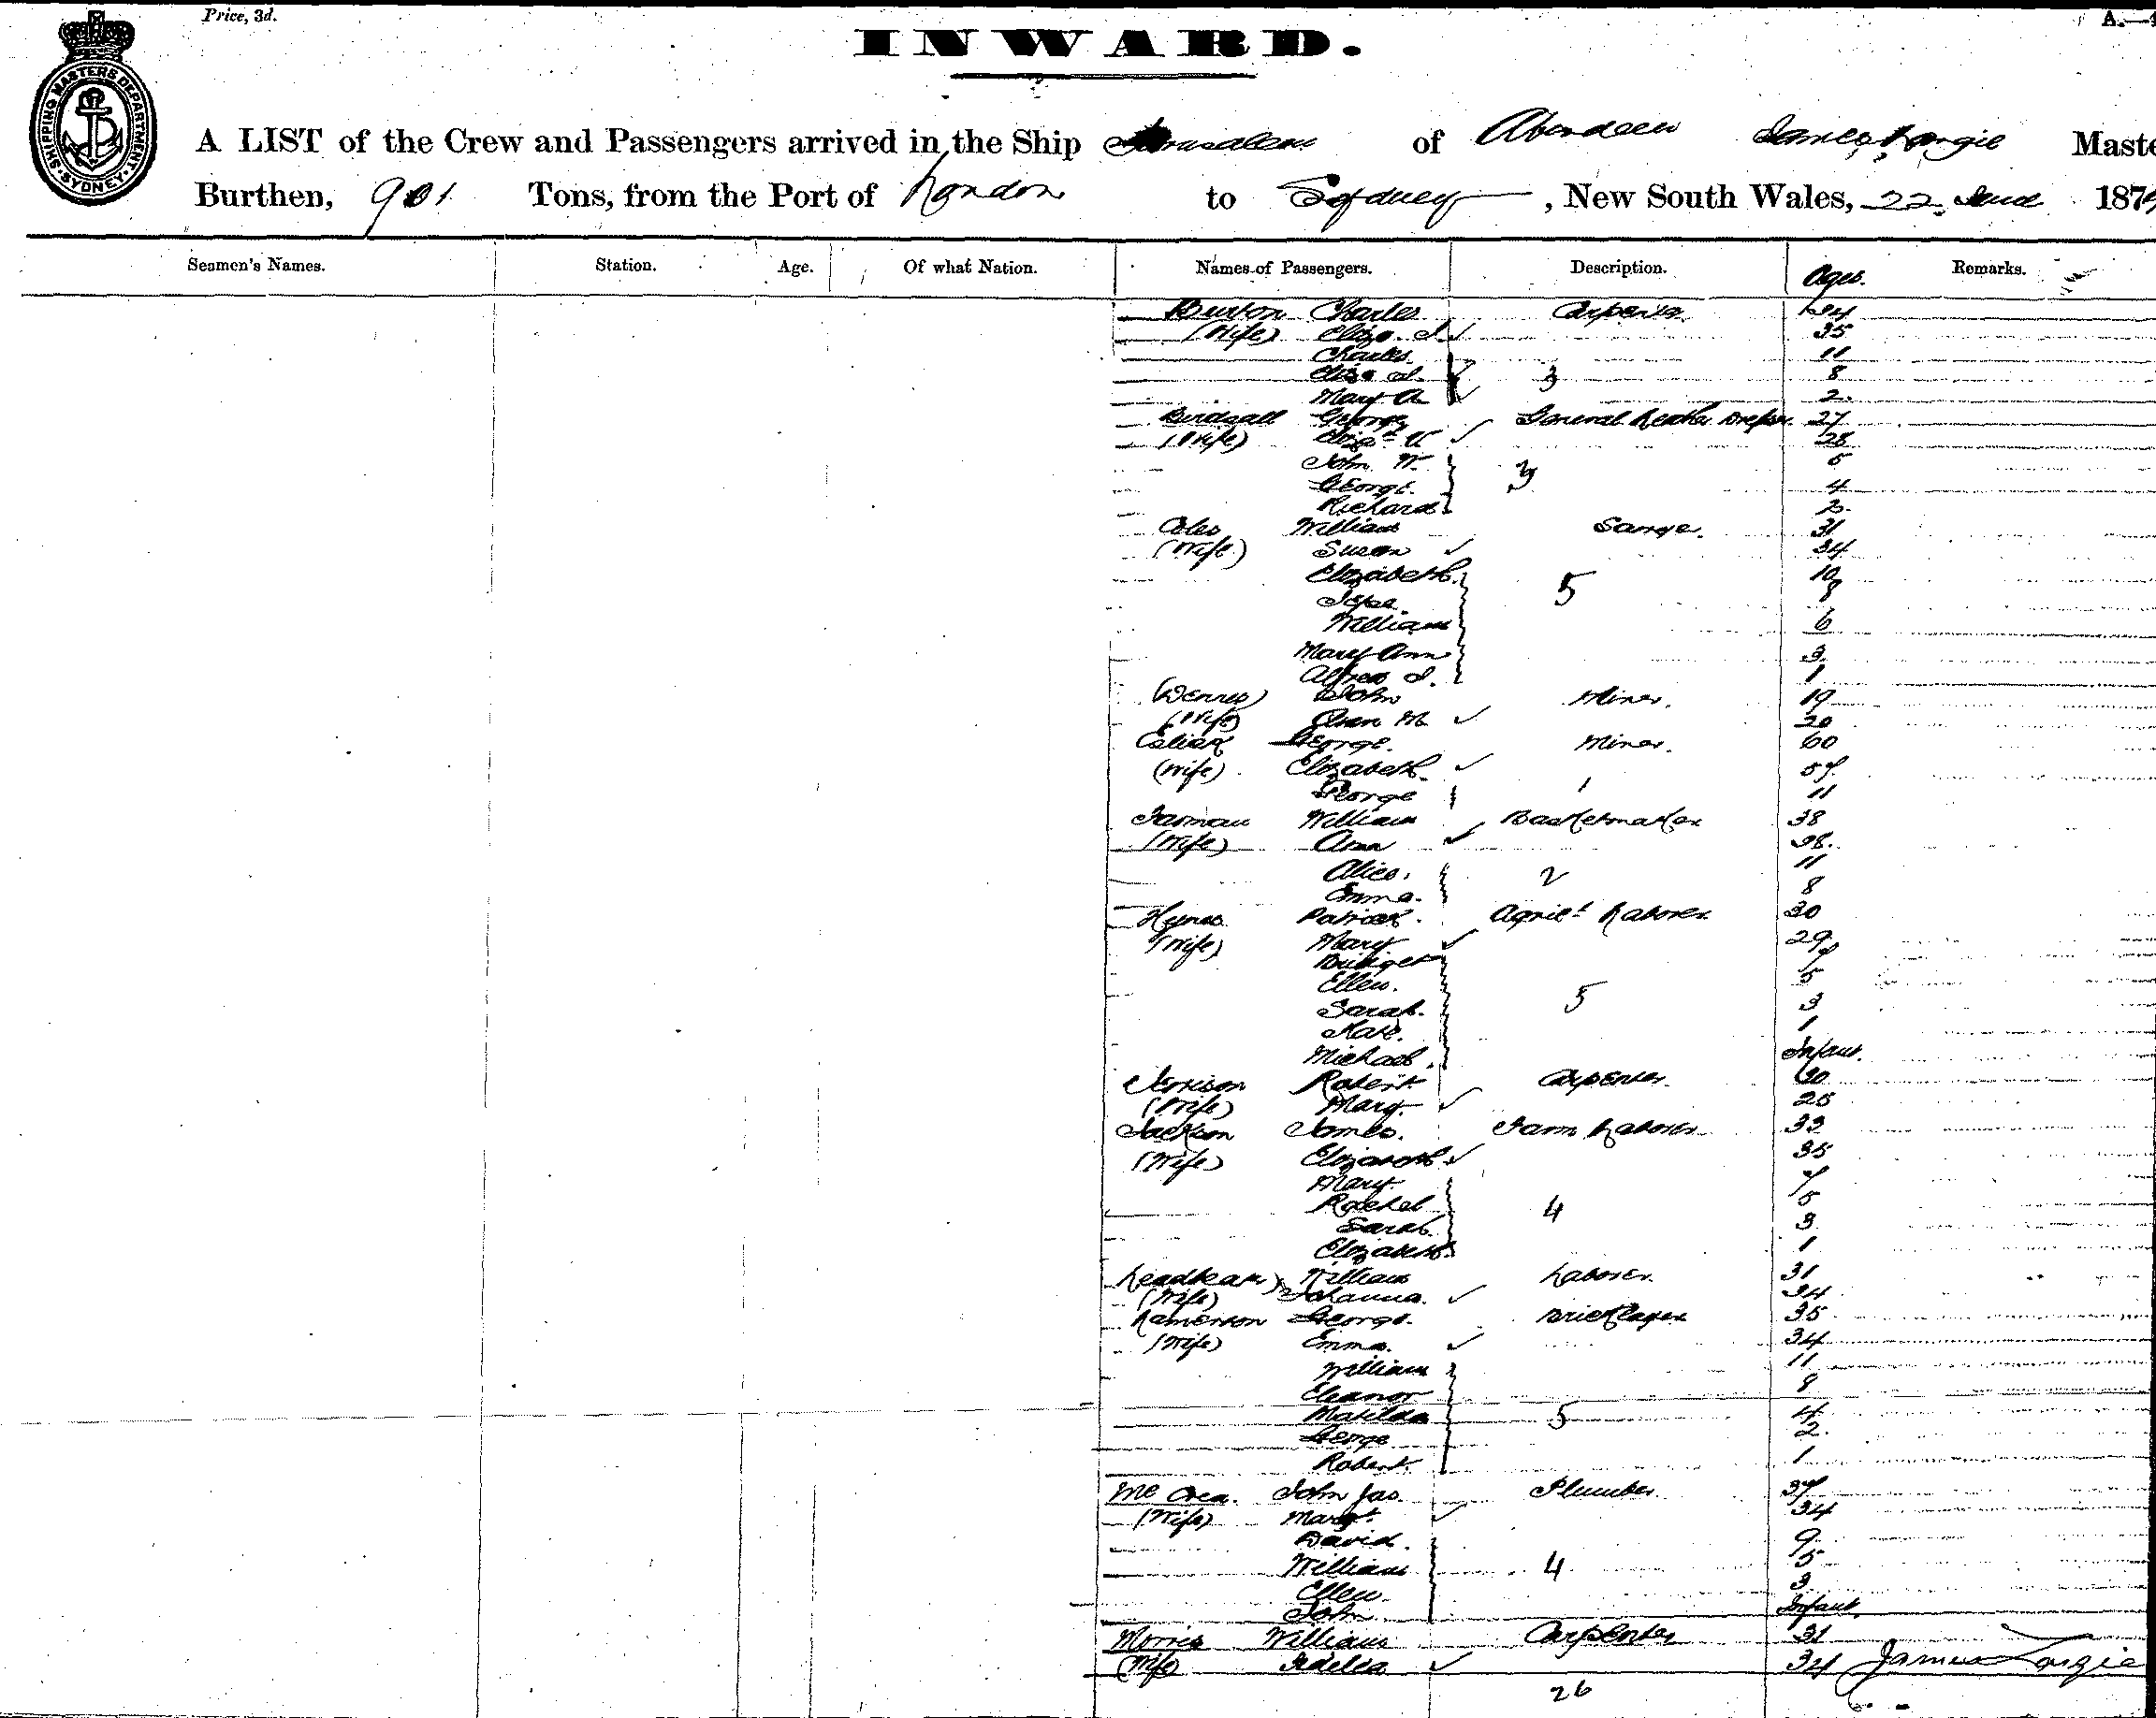 Price, 3d.
A.—4
INWARD.
SHIPPING MASTERS DEPARTMENT · SYDNEY ·
A LIST of the Crew and Passengers arrived in the Ship Jerusalem of Aberdeen James Largie Maste
Burthen, 901 Tons, from the Port of London to Sydney, New South Wales, 22 June 1874
Seamen's Names. Station. Age. Of what Nation. Names of Passengers. Description. Ages. Remarks.
Burton Charles Carpenter
(Wife) Eliza J. 35
Charles 11
Eliza J. 3 8
Mary A 2
Birdsall George General Leather Dresser 27
(Wife) Elizt. 28
John W. 5
George. 3 4
Richard
Coles William 31
(Wife) Susan 34
Elizabeth. 5 10
8
William 6
Mary Ann 3
Alfred J. 1
(Dennis) John Miner. 19
(Wife) Ann M. 20
George. Miner. 60
(Wife) Elizabeth 57
George 1 11
Farman William Basketmaker 38
(Wife) Ann 38.
Alice. 2 11
Emma. 8
Hynes Patrick. Agricl. Laborer 30
(Wife) Mary 29
Bridget
Ellen. 5
Sarah. 5 3
Kate. 1
Michael. Infant.
Robert Carpenter 30
(Wife) Mary. 25
Jackson James. Farm Laborer 33
(Wife) Elizabeth 35
Mary. 7
Rachel 4 5
Sarah 3
Elizabeth. 1
William Laborer. 31
(Wife) Johanna. 34
Lamerson George. Bricklayer 35
(Wife) Emma. 34
William 11
Eleanor 8
Matilda 5 4
George 2
Robert. 1
McCrea. John Jas. Plumber 37
(Wife) Margt. 34
David. 9
William 4 5
Ellen 3
John Infant.
Morris William Carpenter 31
(Wife) Adelia 34 James Largie
26